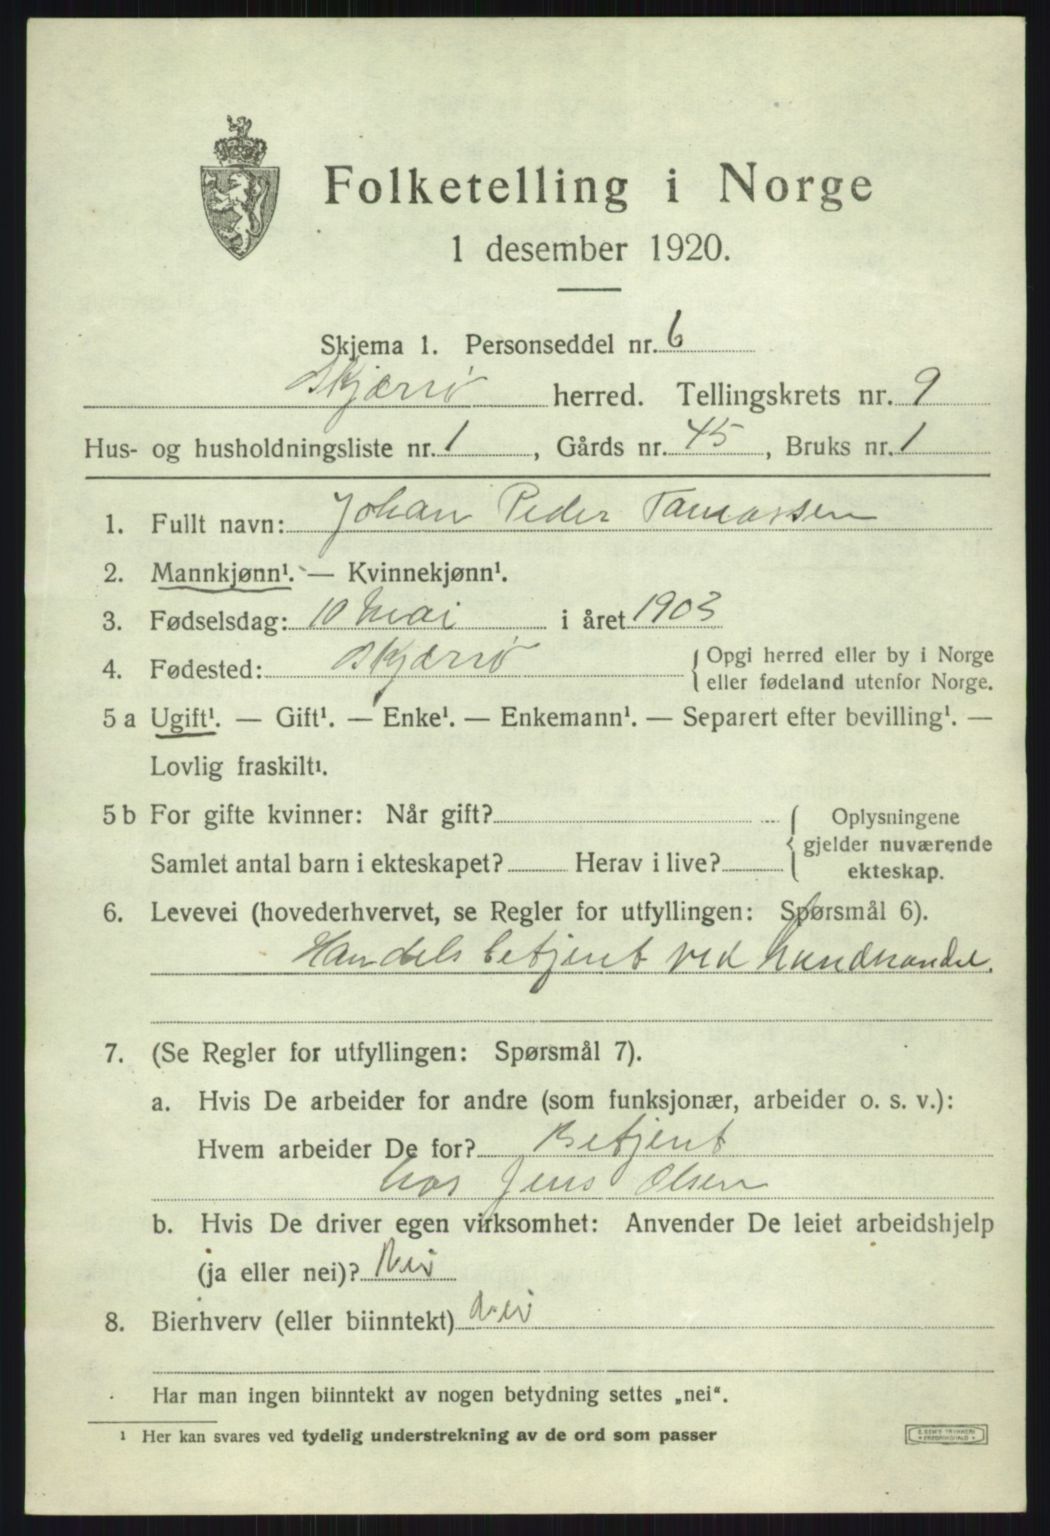 Folketelling i Norge
1 desember 1920.
Skjema 1. Personseddel nr. 6
Skjærvø herred. Tellingskrets nr. 9
Hus- og husholdningsliste nr. 1, Gårds nr. 45, Bruks nr. 1
1. Fullt navn: Johan Peder Tamassen
2. Mannkjønn¹. — Kvinnekjønn¹.
3. Fødselsdag: 10 Mai i året 1903
4. Fødested: Skjærvø { Opgi herred eller by i Norge
eller fødeland utenfor Norge.
5 a Ugift¹. — Gift¹. — Enke¹. — Enkemann¹. — Separert efter bevilling¹. —
Lovlig fraskilt¹.
5 b For gifte kvinner: Når gift? { Oplysningene
gjelder nuværende
Samlet antal barn i ekteskapet? Herav i live?
ekteskap.
6. Levevei (hovederhvervet, se Regler for utfyllingen: Spørsmål 6).
Handelsbetjent ved landhandel.
7. (Se Regler for utfyllingen: Spørsmål 7).
a. Hvis De arbeider for andre (som funksjonær, arbeider o. s. v.):
Hvem arbeider De for? Betjent
hos Jens Olsen
b. Hvis De driver egen virksomhet: Anvender De leiet arbeidshjelp
(ja eller nei)? Nei
8. Bierhverv (eller biinntekt) Nei
Har man ingen biinntekt av nogen betydning settes „nei".
¹ Her kan svares ved tydelig understrekning av de ord som passer